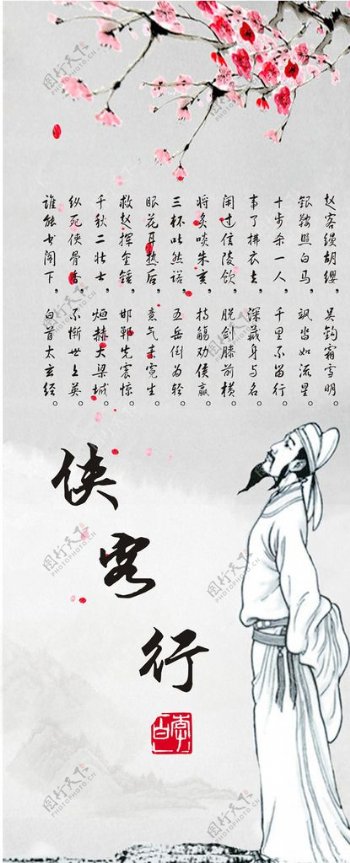 赵客缦胡缨，吴钩霜雪明。
银鞍照白马，飒沓如流星。
十步杀一人，千里不留行。
事了拂衣去，深藏身与名。
闲过信陵饮，脱剑膝前横。
将炙啖朱亥，持觞劝侯嬴。
三杯吐然诺，五岳倒为轻。
眼花耳热后，意气素霓生。
救赵挥金锤，邯郸先震惊。
千秋二壮士，烜赫大梁城。
纵死侠骨香，不惭世上英。
谁能书阁下，白首太玄经。
侠客行
李白
图行天下
PHOTOPHOTO.CN